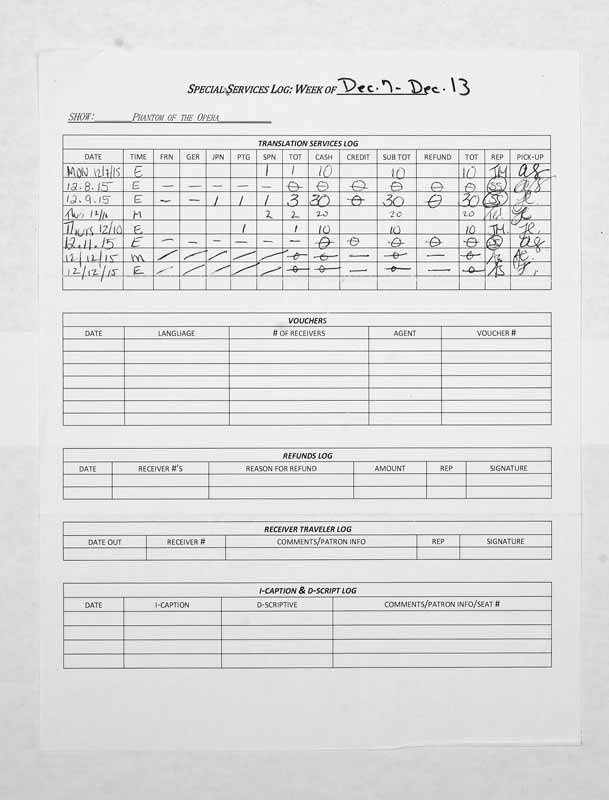 SPECIAL SERVICES LOG: WEEK OF Dec. 7 - Dec. 13
SHOW: PHANTOM OF THE OPERA
TRANSLATION SERVICES LOG
DATE TIME FRN GER JPN PTG SPN TOT CASH CREDIT SUB TOT REFUND TOT REP PICK-UP
MON 12/7/15 E 1 1 10 10 10 JM
12.8.15 E — — — — — 0 0 0 0 0 0 SS
12.9.15 E — — 1 1 1 3 30 0 30 0 30 SS
Thus 12/10 M 2 2 20 20 20
Thurs 12/10 E 1 1 10 10 10 JM
12.11.15 E — — — — — 0 0 0 0 0 0 SS
12/12/15 M / / / / / 0 0 — 0 — 0
12/12/15 E / / / / / 0 0 — 0 — 0
VOUCHERS
DATE LANGUAGE # OF RECEIVERS AGENT VOUCHER #
REFUNDS LOG
DATE RECEIVER #'S REASON FOR REFUND AMOUNT REP SIGNATURE
RECEIVER TRAVELER LOG
DATE OUT RECEIVER # COMMENTS/PATRON INFO REP SIGNATURE
I-CAPTION & D-SCRIPT LOG
DATE I-CAPTION D-SCRIPTIVE COMMENTS/PATRON INFO/SEAT #